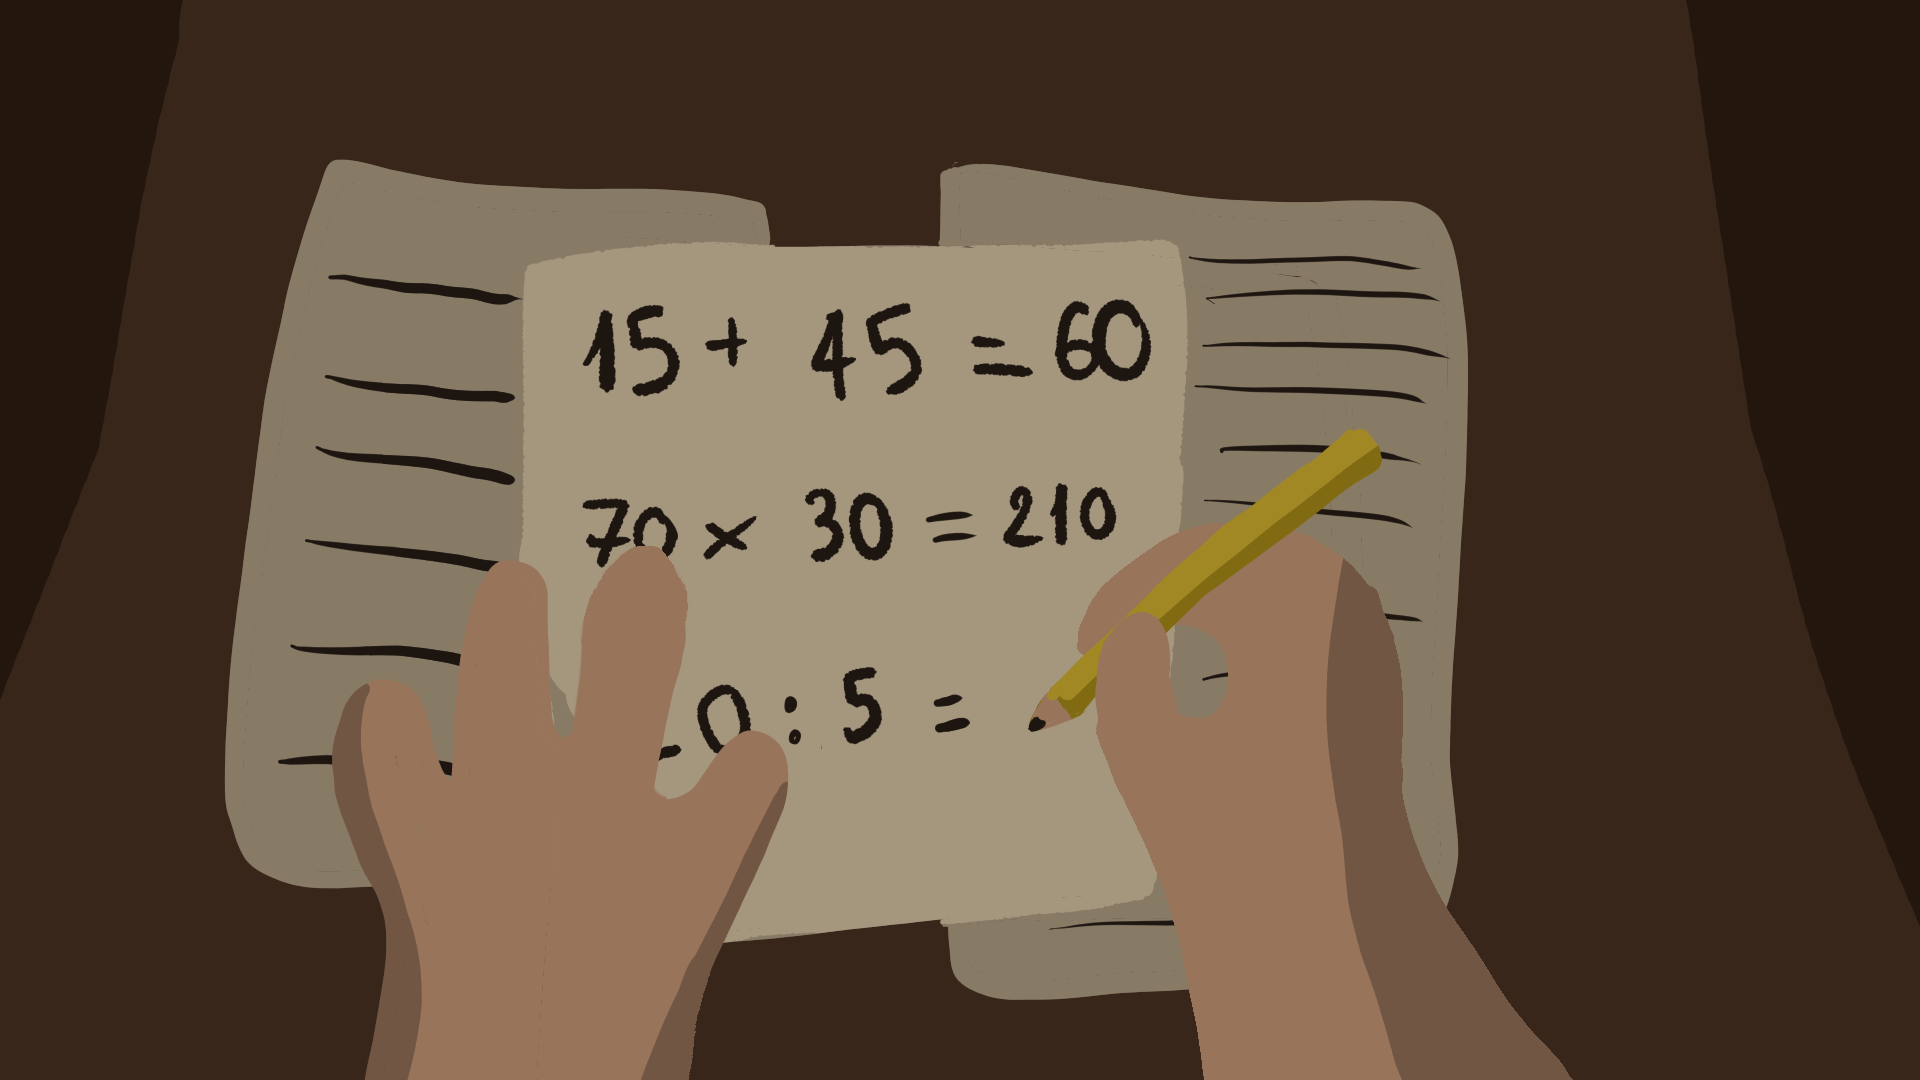 15 + 45 = 60
70 x 30 = 210
0 : 5 =